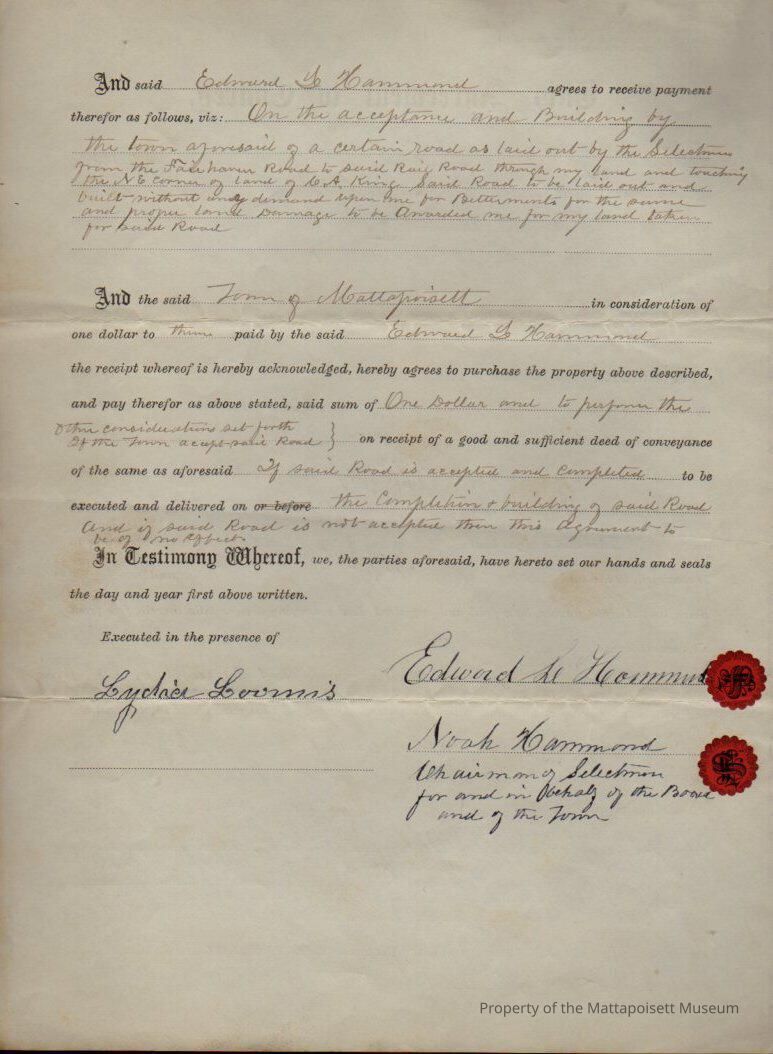 And said Edward L Hammond agrees to receive payment
therefor as follows, viz: On the acceptance and Building by
the town aforesaid of a certain road as laid out by the Selectmen
from the Fairhaven Road to said Rail Road through my land and touching
the N E Corner of land of C A. King. Said Road to be laid out and
built without any demand upon me for Betterments for the same
and proper land Damage to be Awarded me for my land taken
for said Road
And the said Town of Mattapoisett in consideration of
one dollar to them paid by the said Edward L Hammond
the receipt whereof is hereby acknowledged, hereby agrees to purchase the property above described,
and pay therefor as above stated, said sum of One Dollar and to perform the
Other considerations set forth
If the Town accept said Road } on receipt of a good and sufficient deed of conveyance
of the same as aforesaid If said Road is accepted and completed to be
executed and delivered on or before the Completion & building of said Road
And if said Road is not accepted then this agreement to
be of no Effect
In Testimony Whereof, we, the parties aforesaid, have hereto set our hands and seals
the day and year first above written.
Executed in the presence of
Lydia Loomis
Edward L Hammond
Noah Hammond
Chairman of Selectmen
for and in behalf of the Board
and of the Town
Property of the Mattapoisett Museum